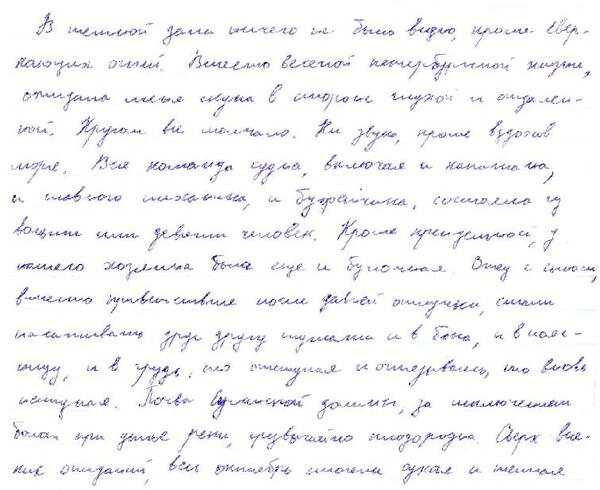 В темной дали ничего не было видно, кроме свер-
кающих огней. Вместо веселой петербургской жизни,
ожидала меня скука в стороне глухой и отдален-
ной. Кругом все молчало. Ни звука, кроме вздохов
моря. Вся команда судна, включая и капитана,
и главного механика, и буфетчика, состояла из
восьми или девяти человек. Кроме крендельной, у
нашего хозяина была еще и булочная. Отец с сыном,
вместо приветствия после давней отлучки, стали
насаживать друг другу тумаки и в бока, и в пояс-
ницу, и в грудь, то отступая и оглядываясь, то вновь
наступая. Почва долины, за исключением
болот при устье реки, чрезвычайно плодородна. Сверх вся-
ких ожиданий, весь октябрь стояла сухая и теплая